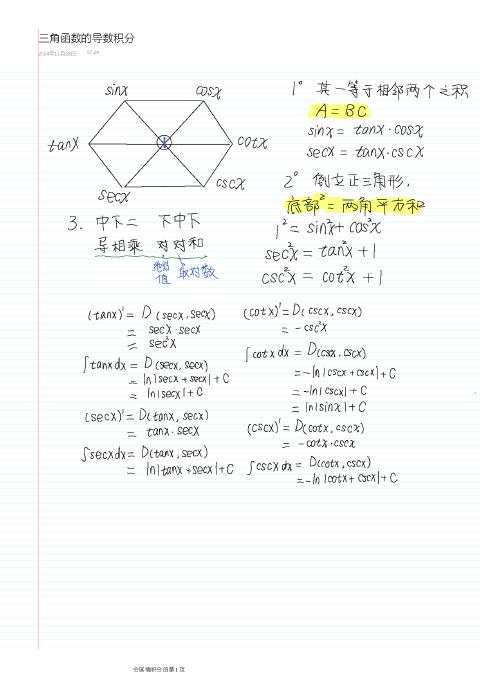 三角函数的导数积分
2024年12月28日 17:24
sinx cosx
tanx 1 cotx
secx cscx
1° 某一等于相邻两个之积
A = BC
sinx = tanx·cosx
secx = tanx·cscx
2° 倒立正三角形,
底部² = 两角平方和
1² = sin²x + cos²x
sec²x = tan²x + 1
csc²x = cot²x + 1
3. 中下二 下中下
导相乘 对对和
绝对值 取对数
(tanx)' = D(secx, secx)
= secx·secx
= sec²x
∫tanxdx = D(secx, secx)
= ln|secx + secx| + C
= ln|secx| + C
(secx)' = D(tanx, secx)
= tanx·secx
∫secxdx = D(tanx, secx)
= ln|tanx + secx| + C
(cotx)' = D(cscx, cscx)
= -csc²x
∫cotxdx = D(cscx, cscx)
= -ln|cscx + cscx| + C
= -ln|cscx| + C
= ln|sinx| + C
(cscx)' = D(cotx, cscx)
= -cotx·cscx
∫cscxdx = D(cotx, cscx)
= -ln|cotx + cscx| + C